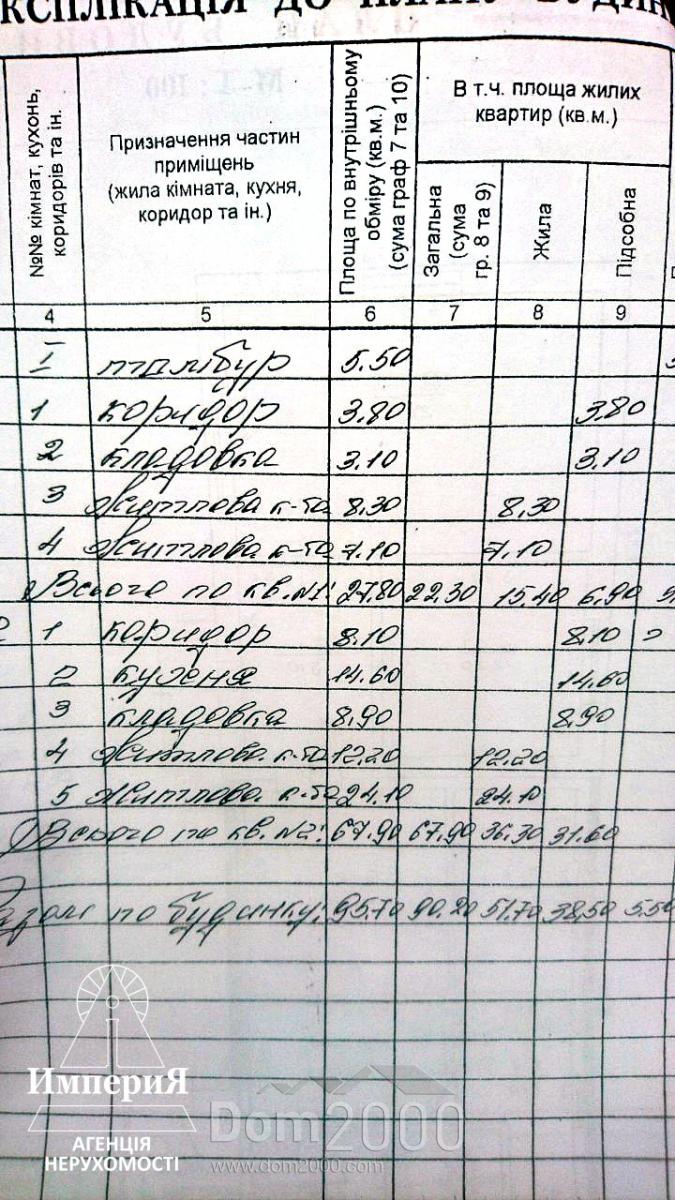 КСПЛІКАЦІЯ ДО ПЛАНУ БУДИН
№№ кімнат, кухонь, коридорів та ін.
Призначення частин приміщень (жила кімната, кухня, коридор та ін.)
Площа по внутрішньому обміру (кв.м.) (сума граф 7 та 10)
В т.ч. площа жилих квартир (кв.м.)
Загальна (сума гр. 8 та 9)
Жила
Підсобна
4 5 6 7 8 9
I тамбур 5.50
1 коридор 3.80 3.80
2 кладовка 3.10 3.10
3 житлова к-та 8.30 8.30
4 житлова к-та 7.10 7.10
Всього по кв. №1: 27.80 22.30 15.40 6.90
2 1 коридор 8.10 8.10
2 кухня 14.60 14.60
3 кладовка 8.90 8.90
4 житлова к-та 12.20 12.20
5 житлова к-та 24.10 24.10
Всього по кв. №2: 67.90 67.90 36.30 31.60
Разом по будинку: 95.70 90.20 51.70 38.50 5.50
ИмпериЯ
АГЕНЦІЯ
НЕРУХОМОСТІ
Dom2000
www.dom2000.com